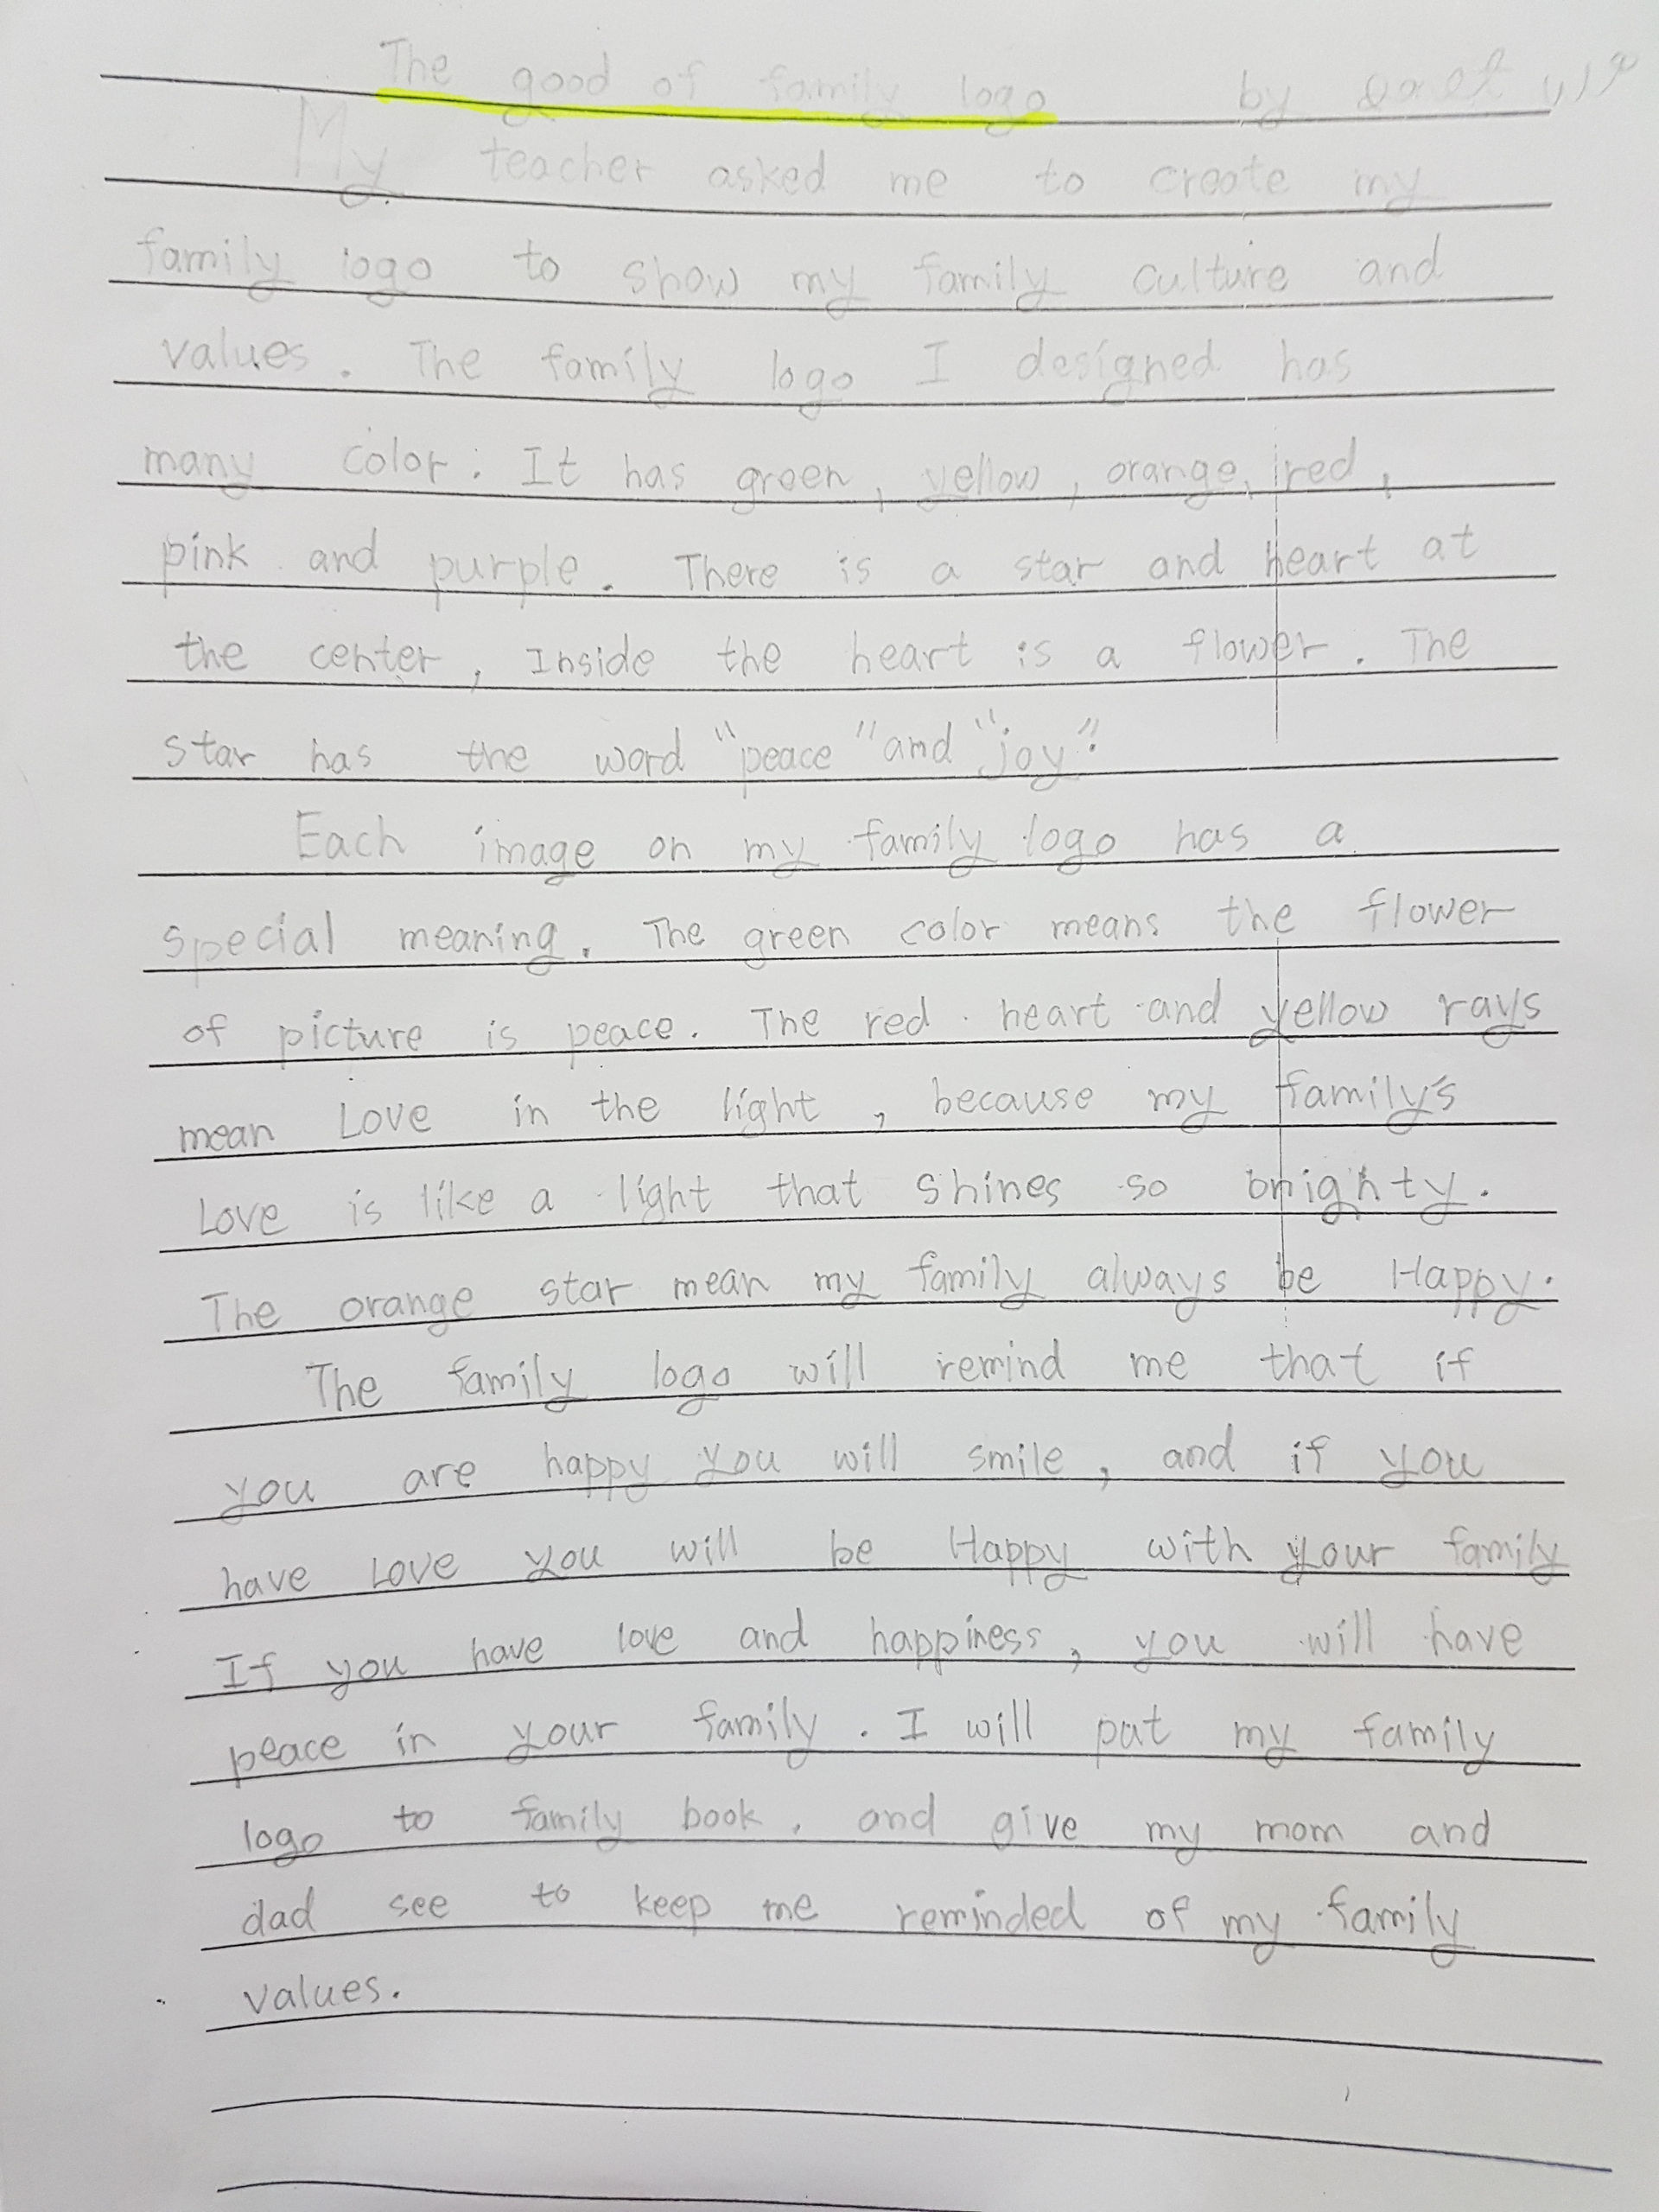 The good of family logo by
My teacher asked me to create my
family logo to show my family culture and
values. The family logo I designed has
many color. It has green, yellow, orange, red,
pink and purple. There is a star and heart at
the center, Inside the heart is a flower. The
star has the word "peace" and "joy".
Each image on my family logo has a
special meaning. The green color means the flower
of picture is peace. The red heart and yellow rays
mean Love in the light, because my family's
Love is like a light that shines so brighty.
The orange star mean my family always be Happy.
The family logo will remind me that if
you are happy you will smile, and if you
have Love you will be Happy with your family
If you have love and happiness, you will have
peace in your family. I will put my family
logo to family book. and give my mom and
dad see to keep me reminded of my family
values.